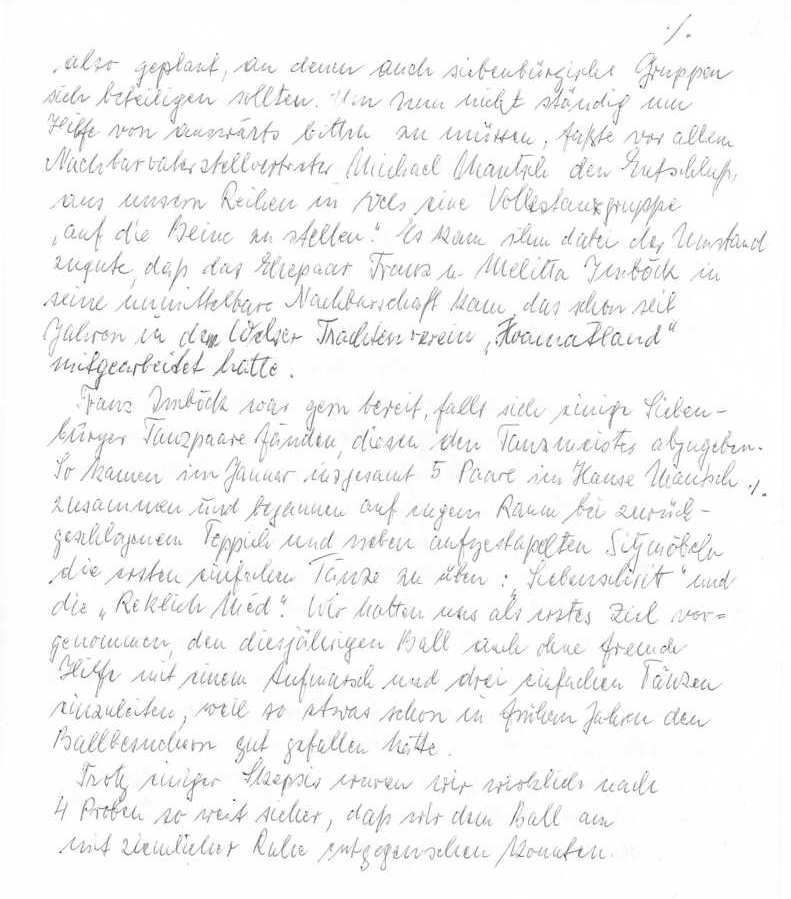 ./.
also geplant, an denen auch siebenbürgische Gruppen
sich beteiligen sollten. Um nun nicht ständig um
Hilfe von auswärts bitten zu müssen, faßte vor allem
Nachbarvaterstellvertreter Michael Mantsch den Entschluß,
aus unsern Reihen in Wels eine Volkstanzgruppe
„auf die Beine zu stellen." Es kam ihm dabei der Umstand
zugute, daß das Ehepaar Franz u. Melitta Imböck in
seine unmittelbare Nachbarschaft kam, das schon seit
Jahren in dem Welser Trachtenverein „Hoamatland"
mitgearbeitet hatte.
Franz Imböck war gern bereit, falls sich einige Sieben-
bürger Tanzpaare fänden, diesen den Tanzmeister abzugeben.
So kamen im Jänner insgesamt 5 Paare im Hause Mantsch ./.
zusammen und begannen auf engem Raum bei zurück-
geschlagenem Teppich und neben aufgestapelten Sitzmöbeln
die ersten einfachen Tänze zu üben: „Siebenschritt" und
die „Reklich Med". Wir hatten uns als erstes Ziel vor=
genommen, den diesjährigen Ball auch ohne fremde
Hilfe mit einem Aufmarsch und drei einfachen Tänzen
einzuleiten, weil so etwas schon in frühern Jahren den
Ballbesuchern gut gefallen hatte.
Trotz einiger Skepsis waren wir wirklich nach
4 Proben so weit sicher, daß wir dem Ball am
mit ziemlicher Ruhe entgegensehen konnten.